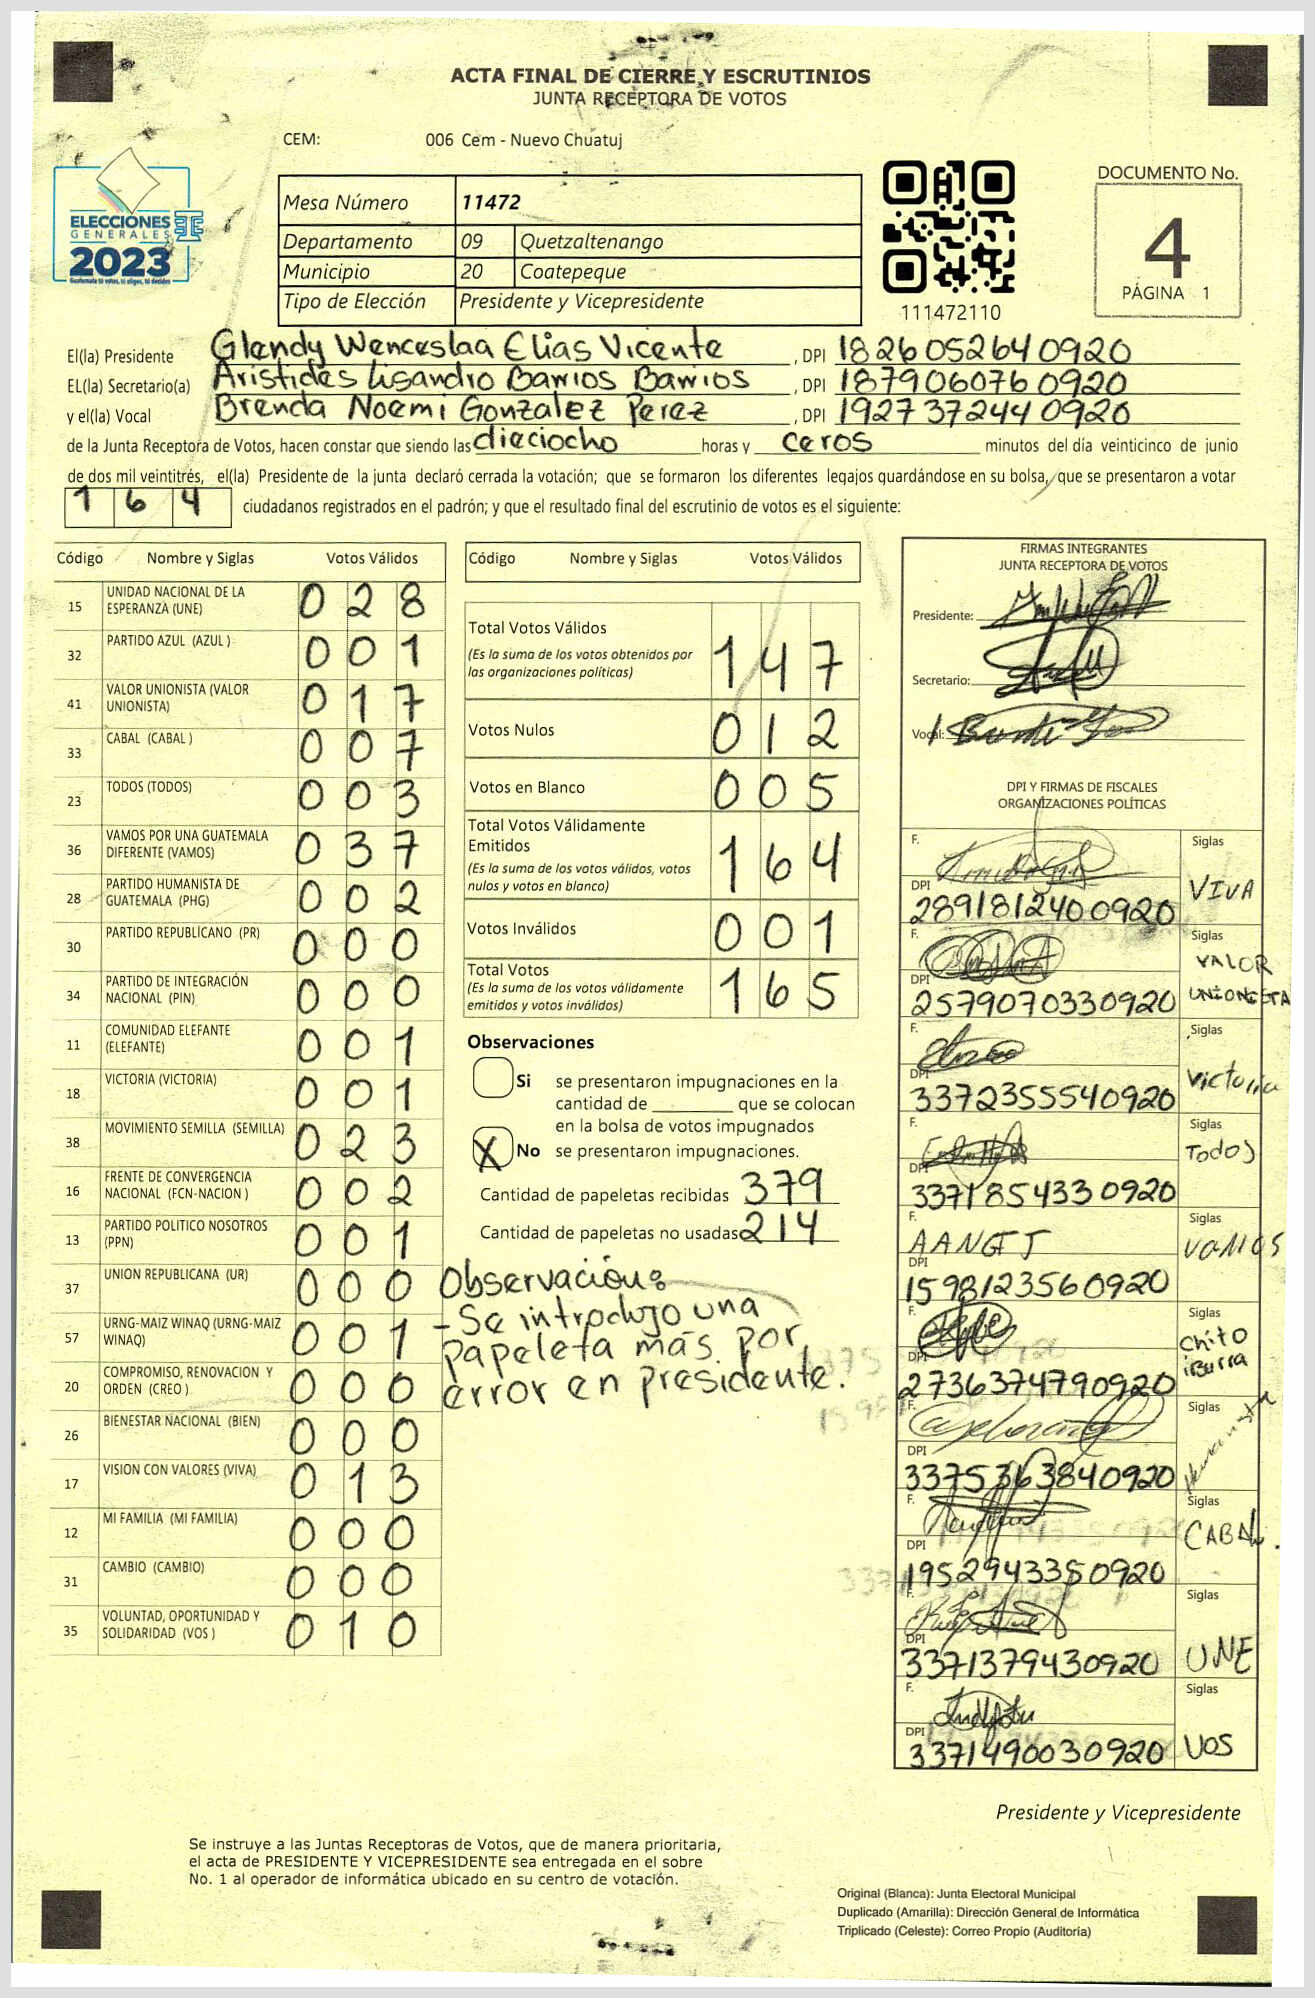 ACTA FINAL DE CIERRE Y ESCRUTINIOS
JUNTA RECEPTORA DE VOTOS
CEM: 006 Cem - Nuevo Chuatuj
ELECCIONES
GENERALES
2023
Guatemala tú votas, tú eliges, tú decides
Mesa Número 11472
Departamento 09 Quetzaltenango
Municipio 20 Coatepeque
Tipo de Elección Presidente y Vicepresidente
111472110
DOCUMENTO No.
4
PÁGINA 1
El(la) Presidente Glendy Wenceslaa Elias Vicente, DPI 1826052640920
EL(la) Secretario(a) Aristides Lisandro Barrios Barrios, DPI 1879060760920
y el(la) Vocal Brenda Noemi Gonzalez Perez, DPI 1927372440920
de la Junta Receptora de Votos, hacen constar que siendo las dieciocho horas y ceros minutos del día veinticinco de junio
de dos mil veintitrés, el(la) Presidente de la junta declaró cerrada la votación; que se formaron los diferentes legajos guardándose en su bolsa, que se presentaron a votar
164 ciudadanos registrados en el padrón; y que el resultado final del escrutinio de votos es el siguiente:
Código Nombre y Siglas Votos Válidos
15 UNIDAD NACIONAL DE LA ESPERANZA (UNE) 028
32 PARTIDO AZUL (AZUL ) 001
41 VALOR UNIONISTA (VALOR UNIONISTA) 017
33 CABAL (CABAL ) 007
23 TODOS (TODOS) 003
36 VAMOS POR UNA GUATEMALA DIFERENTE (VAMOS) 037
28 PARTIDO HUMANISTA DE GUATEMALA (PHG) 002
30 PARTIDO REPUBLICANO (PR) 000
34 PARTIDO DE INTEGRACIÓN NACIONAL (PIN) 000
11 COMUNIDAD ELEFANTE (ELEFANTE) 001
18 VICTORIA (VICTORIA) 001
38 MOVIMIENTO SEMILLA (SEMILLA) 023
16 FRENTE DE CONVERGENCIA NACIONAL (FCN-NACION ) 002
13 PARTIDO POLITICO NOSOTROS (PPN) 001
37 UNION REPUBLICANA (UR) 000
57 URNG-MAIZ WINAQ (URNG-MAIZ WINAQ) 001
20 COMPROMISO, RENOVACION Y ORDEN (CREO ) 000
26 BIENESTAR NACIONAL (BIEN) 000
17 VISION CON VALORES (VIVA) 013
12 MI FAMILIA (MI FAMILIA) 000
31 CAMBIO (CAMBIO) 000
35 VOLUNTAD, OPORTUNIDAD Y SOLIDARIDAD (VOS ) 010
Código Nombre y Siglas Votos Válidos
Total Votos Válidos 147
(Es la suma de los votos obtenidos por
las organizaciones políticas)
Votos Nulos 012
Votos en Blanco 005
Total Votos Válidamente
Emitidos 164
(Es la suma de los votos válidos, votos
nulos y votos en blanco)
Votos Inválidos 001
Total Votos 165
(Es la suma de los votos válidamente
emitidos y votos inválidos)
Observaciones
Si se presentaron impugnaciones en la
cantidad de ________ que se colocan
en la bolsa de votos impugnados
X No se presentaron impugnaciones.
Cantidad de papeletas recibidas 379
Cantidad de papeletas no usadas 214
Observación:
- Se introdujo una
papeleta más por
error en presidente.
FIRMAS INTEGRANTES
JUNTA RECEPTORA DE VOTOS
Presidente:
Secretario:
Vocal:
DPI Y FIRMAS DE FISCALES
ORGANIZACIONES POLÍTICAS
F. Siglas
DPI 2891812400920 VIVA
F. Siglas
DPI 2579070330920 VALOR UNIONISTA
F. Siglas
DPI 3372355540920 Victoria
F. Siglas
DPI 3371854330920 Todos
F. Siglas
DPI 1598123560920 VaMOS
F. Siglas
DPI 2736374790920 Chito
F. Siglas
DPI 3375363840920
F. Siglas
DPI 1952943350920 CABAL.
F. Siglas
DPI 3371379430920 UNE
F. Siglas
DPI 3371490030920 VOS
Presidente y Vicepresidente
Se instruye a las Juntas Receptoras de Votos, que de manera prioritaria,
el acta de PRESIDENTE Y VICEPRESIDENTE sea entregada en el sobre
No. 1 al operador de informática ubicado en su centro de votación.
Original (Blanca): Junta Electoral Municipal
Duplicado (Amarilla): Dirección General de Informática
Triplicado (Celeste): Correo Propio (Auditoría)